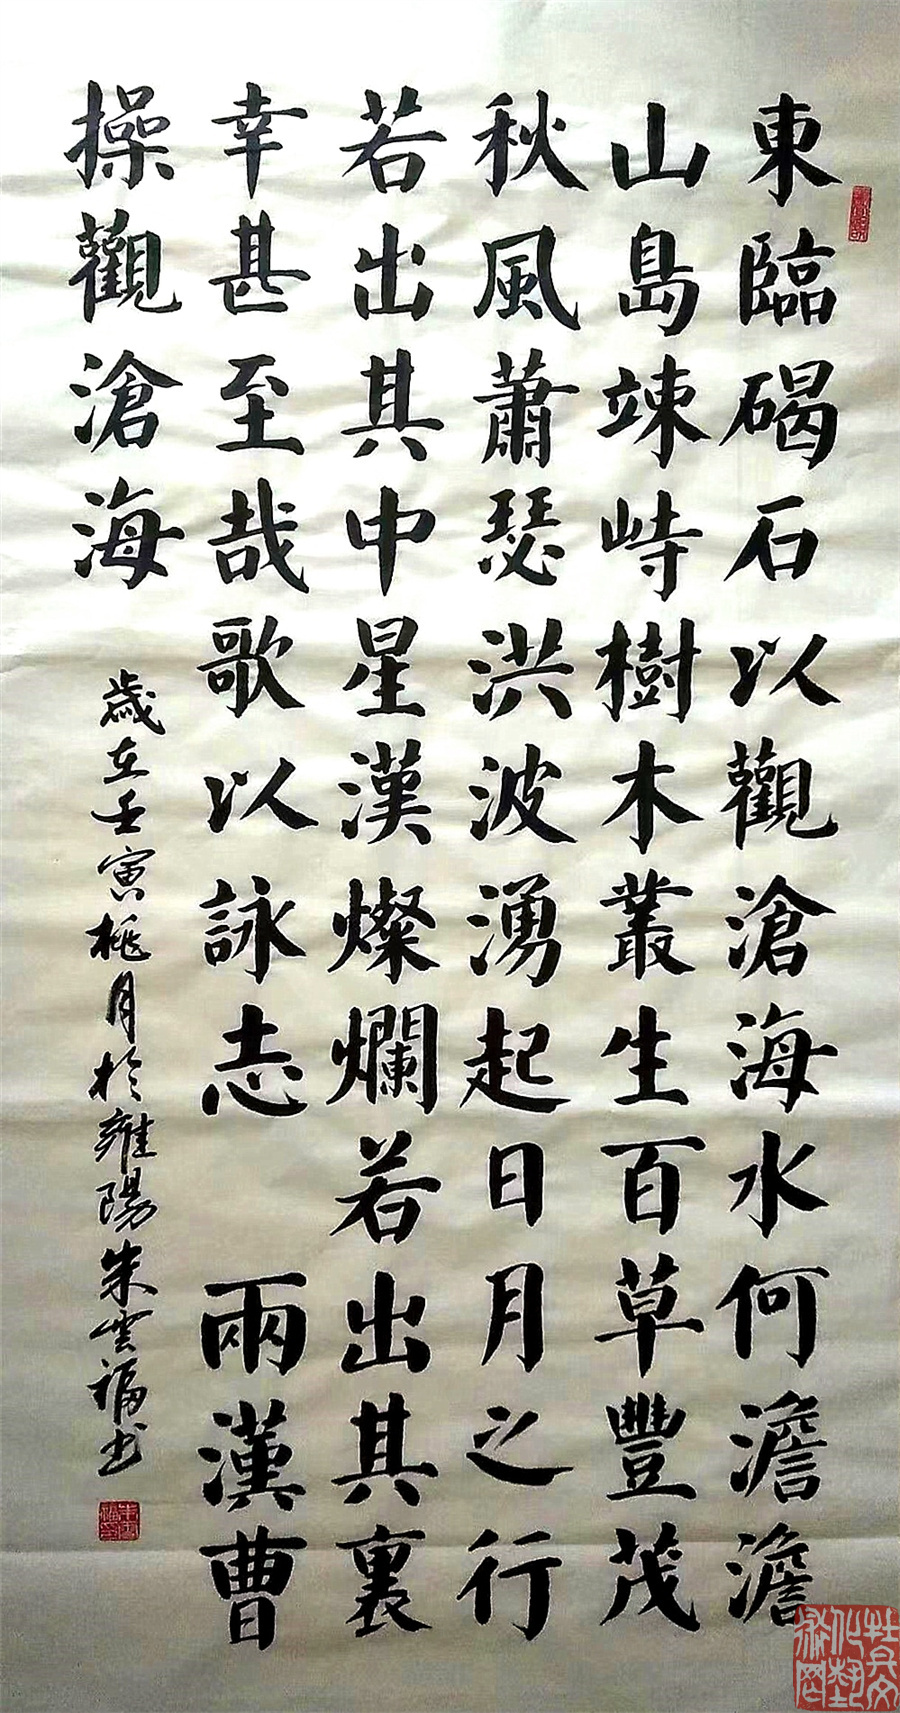 東臨碣石以觀滄海水何澹澹
山島竦峙樹木叢生百草豐茂
秋風蕭瑟洪波湧起日月之行
若出其中星漢燦爛若出其裏
幸甚至哉歌以詠志 兩漢曹
操觀滄海
歲在壬寅桃月於雍陽朱雲福书